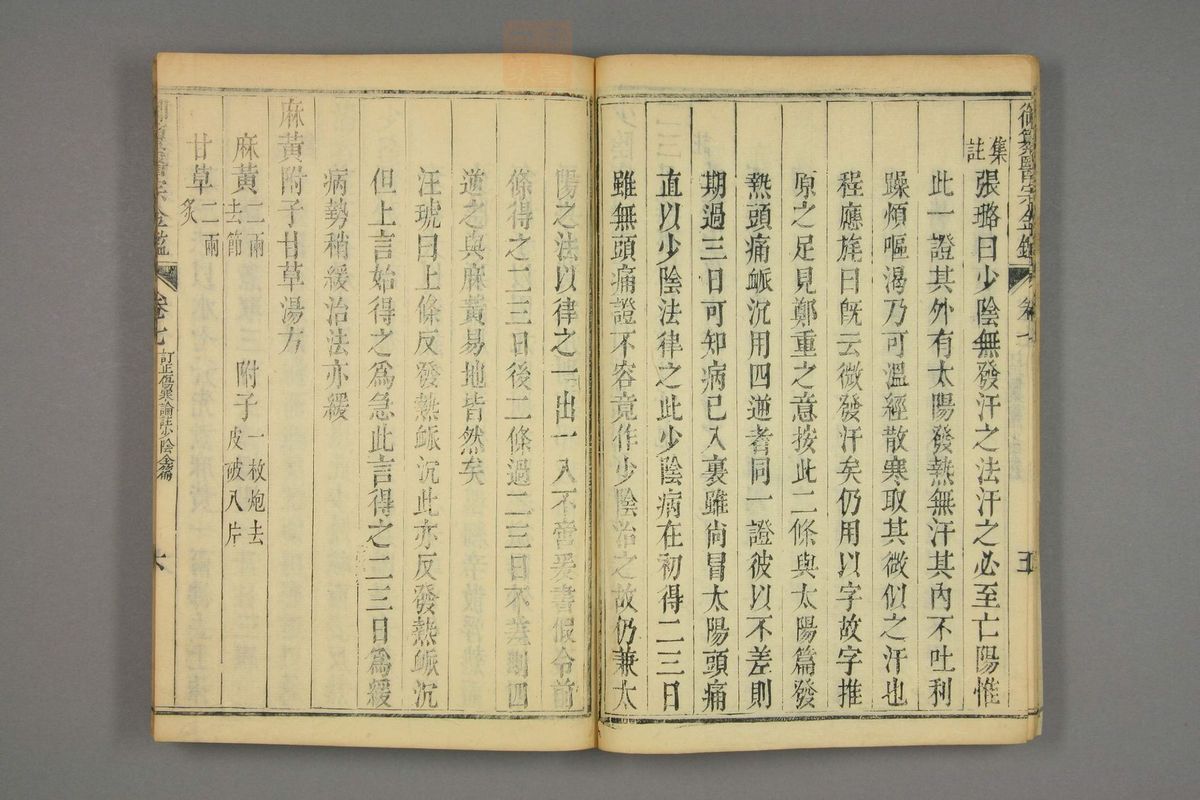 御纂醫宗金鑑 卷七 五
集註
張璐曰少陰無發汗之法汗之必至亡陽惟
此一證其外有太陽發熱無汗其內不吐利
躁煩嘔渴乃可溫經散寒取其微似之汗也
程應旄曰旣云微發汗矣仍用以字故字推
原之足見鄭重之意按此二條與太陽篇發
熱頭痛脈沉用四逆者同一證彼以不差則
期過三日可知病已入裏雖尙冒太陽頭痛
直以少陰法律之此少陰病在初得二三日
雖無頭痛證不容竟作少陰治之故仍兼太
陽之法以律之一出一入不啻爰書假令前
條得之二三日後二條過二三日不差則四
逆之與麻黃易地皆然矣
汪琥曰上條反發熱脈沉此亦反發熱脈沉
但上言始得之爲急此言得之二三日爲緩
病勢稍緩治法亦緩
麻黃附子甘草湯方
麻黃二兩去節 附子一枚炮去皮破八片
甘草二兩炙
卷七 訂正傷寒論註少陰全篇 六